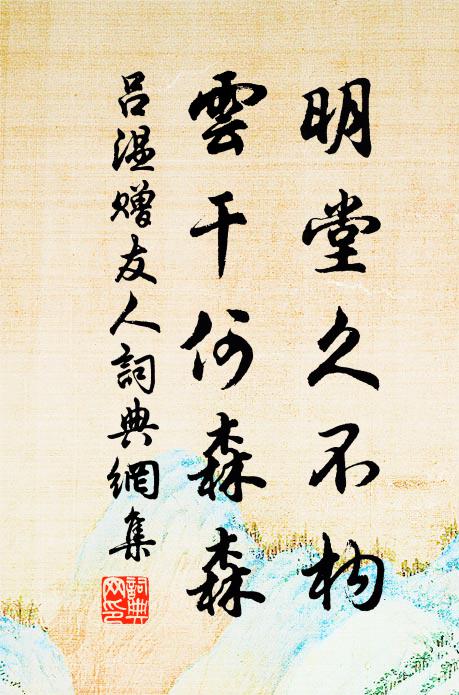 明堂久不构
雲干何森森
吕温赠友人詞典網集
詞典
网印